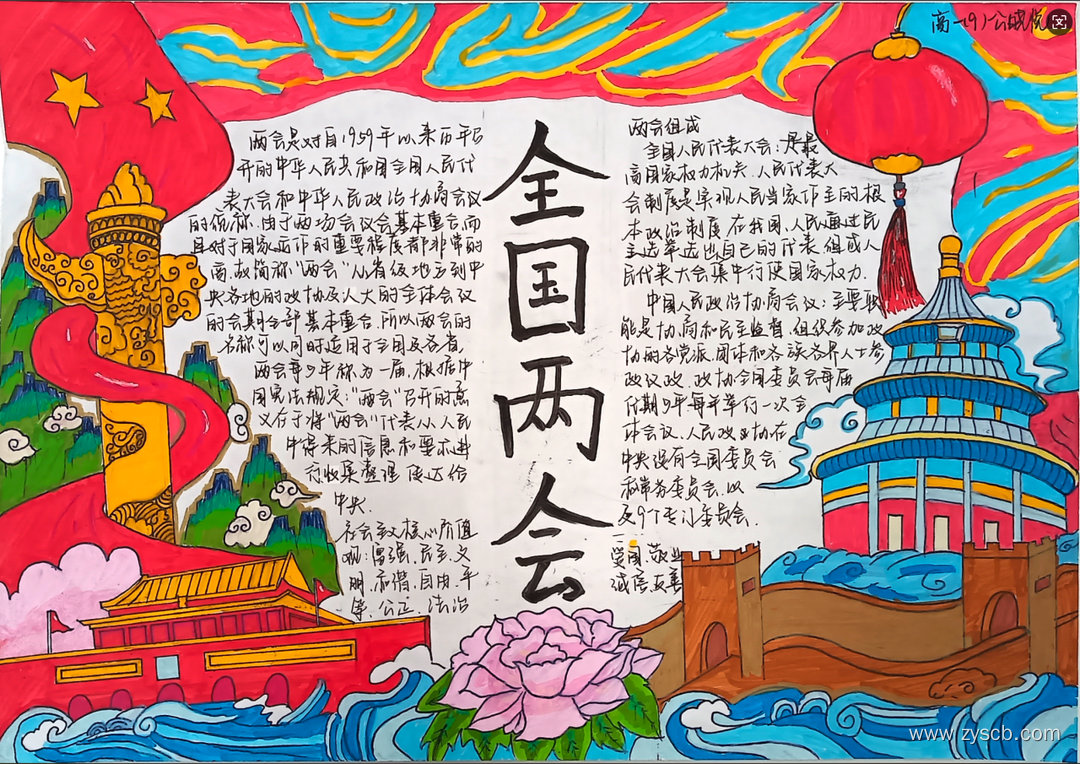 高一(9)
全国两会
两会是对自1959年以来历年召
开的中华人民共和国全国人民代
表大会和中华人民政治协商会议
的统称.由于两场会议会基本重合,而
且对于国家运作的重要程度都非常的
高,故简称“两会”从省级地方到中
央各地的政协及人大的全体会议
的会期全部基本重合,所以两会的
名称可以同时适用于全国及各省.
两会每5年称为一届,根据中
国宪法规定:“两会”召开的意
义在于将“两会”代表从人民
中得来的信息和要求进
行收集整理 传达给
中央.
社会主义核心价值
观:富强.民主.文
明.和谐.自由.平
等.公正.法治
两会组成
全国人民代表大会:是最
高国家权力机关.人民代表大
会制度是实现人民当家作主的根
本政治制度.在我国,人民通过民
主选举选出自己的代表.组成人
民代表大会集中行使国家权力.
中国人民政治协商会议:主要职
能是协商和民主监督,组织参加政
协的各党派.团体和各族各界人士参
政议政.政协全国委员会每届
任期5年每年举行一次全
体会议.人民政协在
中央设有全国委员会
和常务委员会.以
及9个专门委员会.
爱国.敬业
诚信.友善
www.zyscb.com